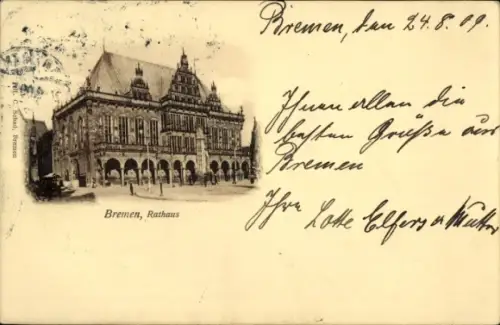 Bremen, den 24.8.09.
Ihnen allen die
besten Grüße aus
Bremen
Ihre
Lotte Elfers u Mutter
Bremen, Rathaus
Bremen